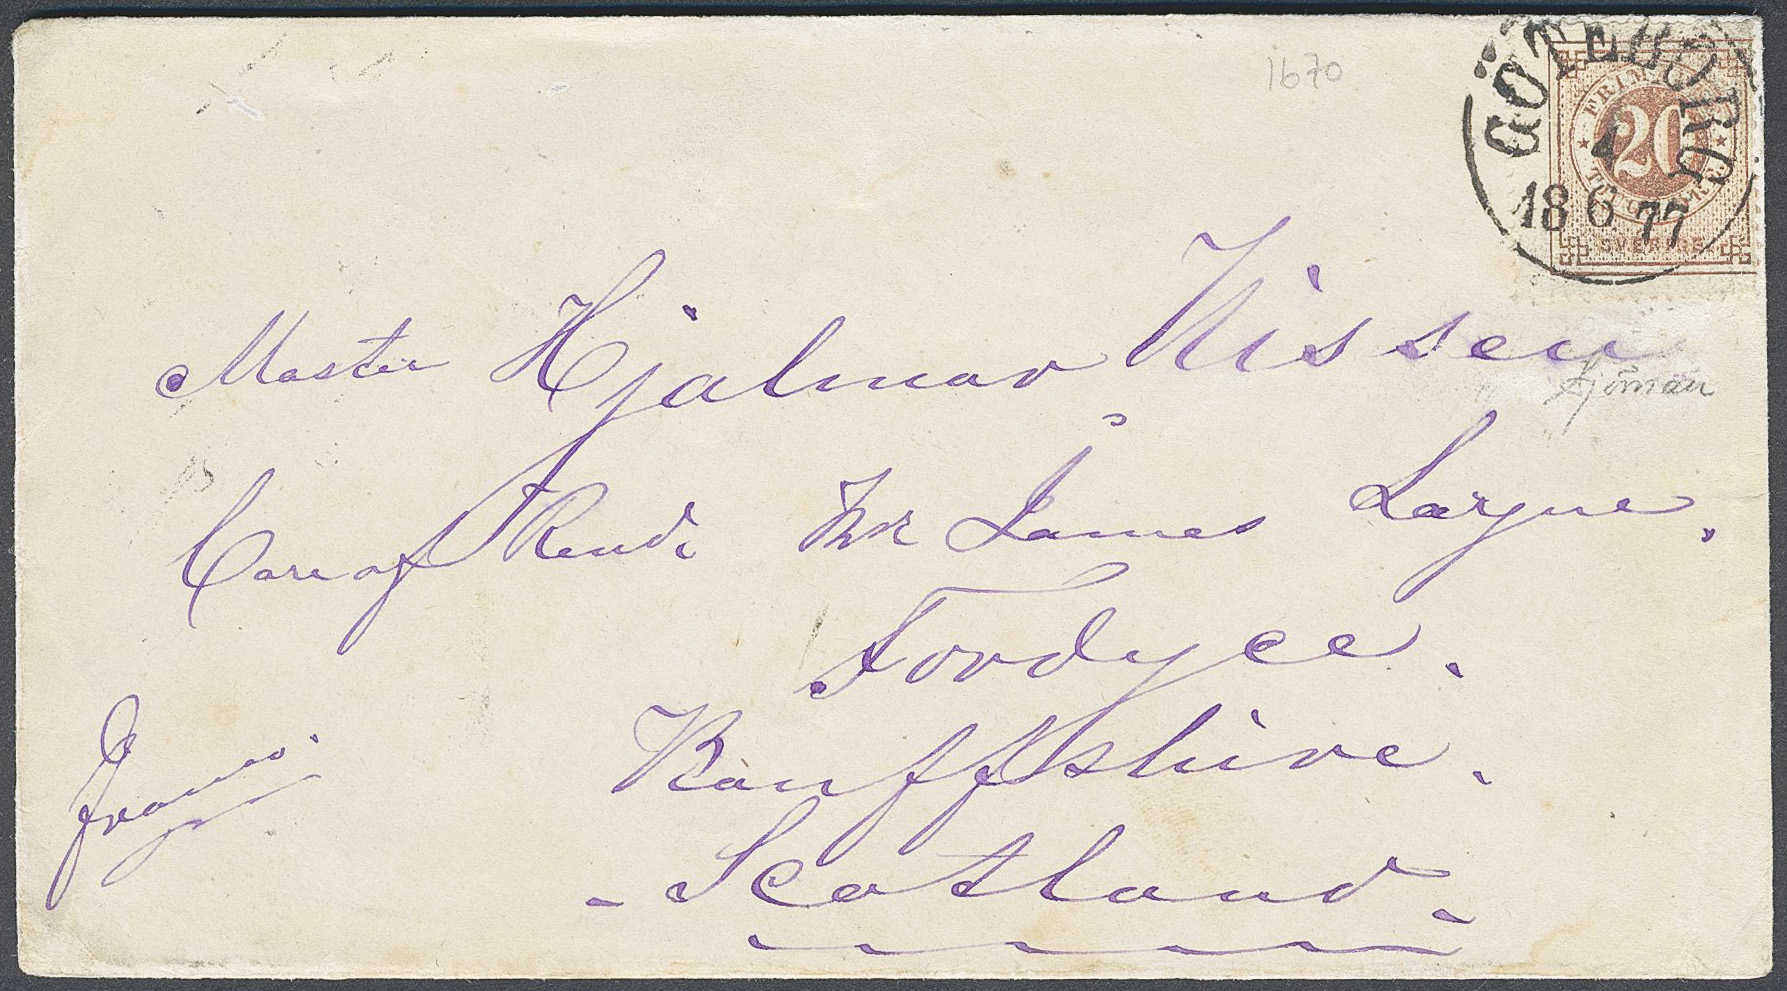 1670
GÖTEBORG
4
18 6 77
FRIMÄRKE
20
TJUGO ÖRE
SVERIGE
Master Hjalmar Nissen
Care of Revd. Mr James Layne.
Fordyce.
Banffshire.
- Scotland. -
Franco.